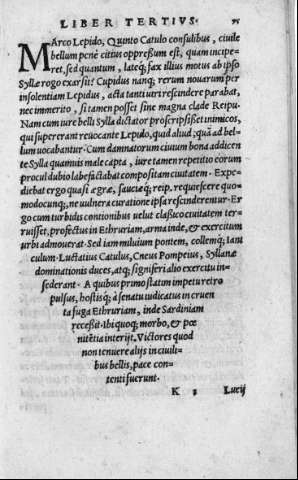 LIBER TERTIVS. 75
MArco Lepido, Quinto Catulo consulibus, ciuile
bellum penè citius oppressum est, quam incipe-
ret, sed quantum, lateq́; fax illius motus ab ipso
Syllæ rogo exarsit! Cupidus nanq; rerum nouarum per
insolentiam Lepidus, acta tanti uiri rescindere parabat,
nec immerito, si tamen posset sine magna clade Reipu.
Nam cum iure belli Sylla dictator proscripsisset inimicos,
qui supererant reuocante Lepido, quid aliud, quā ad bel-
lum uocabantur? Cum damnatorum ciuium bona addicen
te Sylla quamuis male capta, iure tamen repetitio eorum
procul dubio labefactabat compositam ciuitatem. Expe-
diebat ergo quasi ægræ, sauciæq́; reip. requiescere quo-
modocunq;, ne uulnera curatione ipsa rescinderentur. Er
go cum turbidis contionibus uelut classico ciuitatem ter-
ruisset, profectus in Ethruriam, arma inde, & exercitum
urbi admouerat. Sed iam miluium pontem, collemq́; Iani
culum. Luctatius Catulus, Cneus Pompeius, Syllanæ
dominationis duces, atq; signiferi alio exercitu in-
sederant. A quibus primo statim impetu retro
pulsus, hostisq́; à senatu iudicatus in cruen
ta fuga Ethruriam, inde Sardiniam
recessit. Ibi quoq; morbo, & pœ
nitētia interijt. Victores quod
non temere alijs in ciuili-
bus bellis, pace con-
tenti fuerunt.
K 3 Lucij